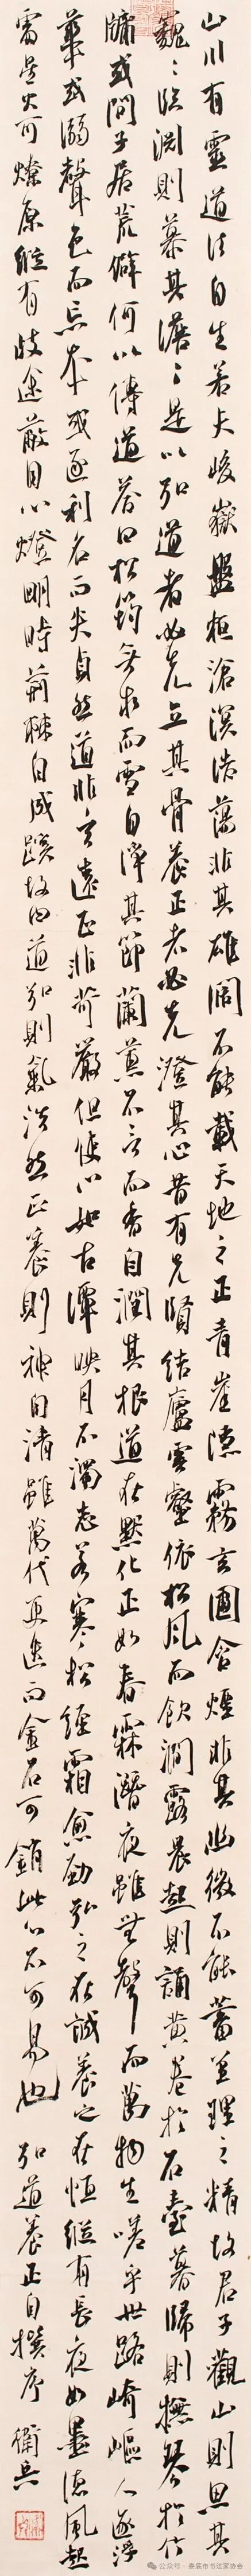 山川有靈道法自生若夫峻嶽盤桓滄溟浩蕩非其雄闊不能載天地之正青崖隱霧玄圃含煙非其幽微不能蓄至理之精故君子觀山則思其
巍巍臨淵則慕其澹澹是以弘道者必先立其骨養正者必先澄其心昔有先賢結廬雲壑依松風而飲澗露晨起則誦黃卷於石臺暮歸則撫琴於竹
牖或問子居荒僻何以傳道答曰松筠無求而雪自淨其節蘭蕙不言而香自潤其根道在默化正如春霖潛夜雖無聲而萬物生嗟乎世路崎嶇人逐浮
華或溺聲色而忘本或逐利名而失貞然道非玄遠正非苛嚴但使心如古潭映月不濁志若寒松經霜愈勁弘之在誠養之在恆縱有長夜如墨德風起
當星火可燎原縱有歧途蔽目心燈明時荊棘自成蹊故曰道弘則氣浩然正養則神自清雖萬代更迭而金石可銷此心不可易也
弘道養正自撰序
公众号·娄底市书法家协会